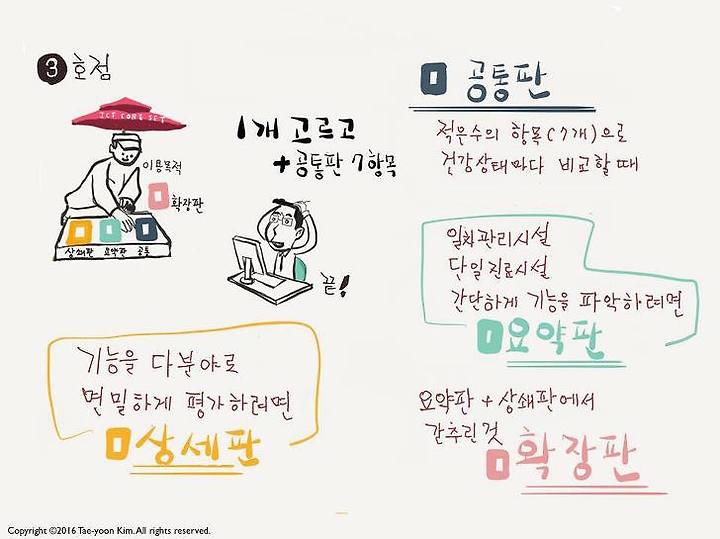 3 호점
ICF CORE SET
이용목적
확장판
상쇄판 요약판 공통
1개 고르고
+ 공통판 7항목
끝!
공통판
적은수의 항목(7개)으로
건강상태마다 비교할때
일차관리시설
단일진료시설
간단하게 기능을 파악하려면
요약판
기능을 다분야로
면밀하게 평가하려면
상세판
요약판 + 상쇄판에서
간추린것
확장판
Copyright ©2016 Tae-yoon Kim. All rights reserved.